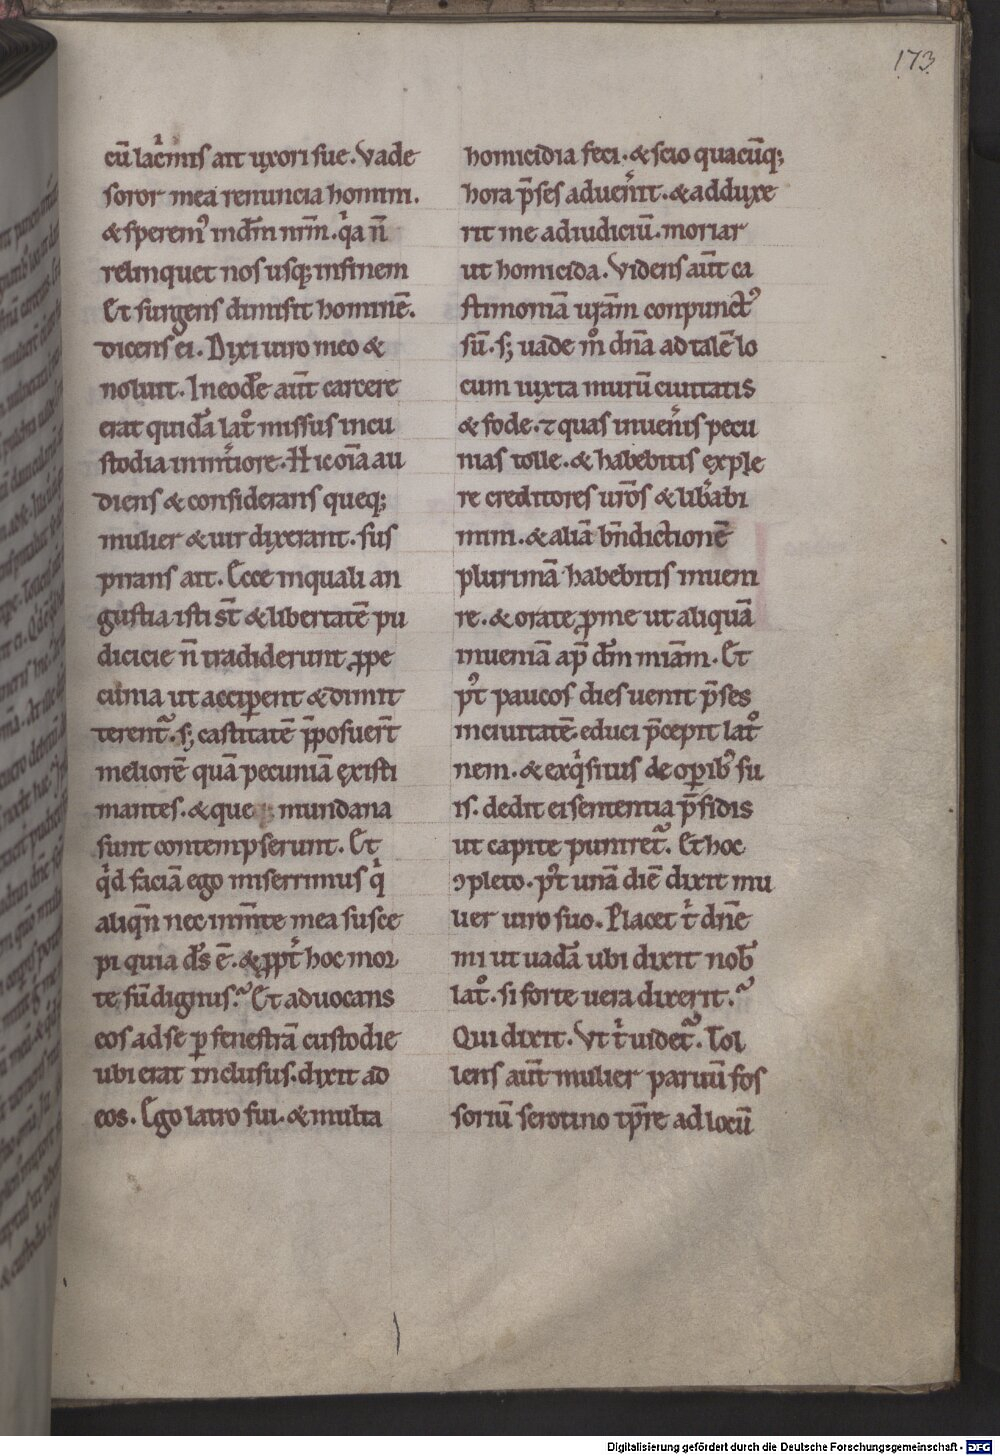 173
cū lac̄mis ait uxori sue. Vade
soror mea renuncia homini.
& sperem᷒ in dm̄ nrm̄. qͥa n̄
relinquet nos usq; in finem
Et surgens dimisit hominē.
dicens ei. Dixi uiro meo &
noluit. In eodē aūt carcere
erat quidā latͦ missus in cu
stodia inīteriore. Hic oīa au
diens & considerans queq;
mulier & uir dixerant. sus
pirans ait. Ecce in quali an
gustia isti st̄ & libertatē pu
dicicie n̄ tradiderunt ꝓpe
cunia ut acciꝑent & dimit
terent᷑. s; castitatē p̄posuert̄
meliorē quā pecuniā existi
mantes. & que mundana
sunt contempserunt. Et
qͥd faciā ego miserrimus qͥ
aliqn̄ nec inm̄te mea susce
pi quia ds̄ ē. & ꝓpt̄ hoc mor
te sū dignus? Et aduocans
eos ad se ꝑ fenestrā custodie
ubi erat inclusus. dixit ad
eos. Ego latro fui. & multa
homicidia feci. & scio quacūq;
hora p̄ses aduen̄it. & adduxe
rit me ad iudiciū. moriar
ut homicida. Videns aūt ca
stimoniā urām conpunct᷒
sū. s; uade m̊ dn̄a ad talē lo
cum iuxta murū ciuitatis
& fode. ⁊ quas inuen̄is pecu
nias tolle. & habebitis exple
re creditores uros̄ & lib̄abi
mini. & aliā bn̄dictionē
plurimā habebitis inueni
re. & orate ꝓ me ut aliquā
inueniā ap̄ dm̄ miām. Et
p᷒t paucos dies uenit p̄ses
in ciuitatē. educi p̄cepit latͦ
nem. & exqͥsitus de oꝑib᷒ su
is. dedit ei sententia p̄sidis
ut capite puniret᷑. Et hoc
ꝯpleto. p᷒t unā diē dixit mu
lier uiro suo. Placet tͥ dn̄e
mi ut uadā ubi dixit nob̄
latͦ. si forte uera dixerit?
Qui dixit. Vt tͥ uidet᷑. Tol
lens aūt mulier paruū fos
soriū serotino tp̄re ad locū
Digitalisierung gefördert durch die Deutsche Forschungsgemeinschaft - DFG